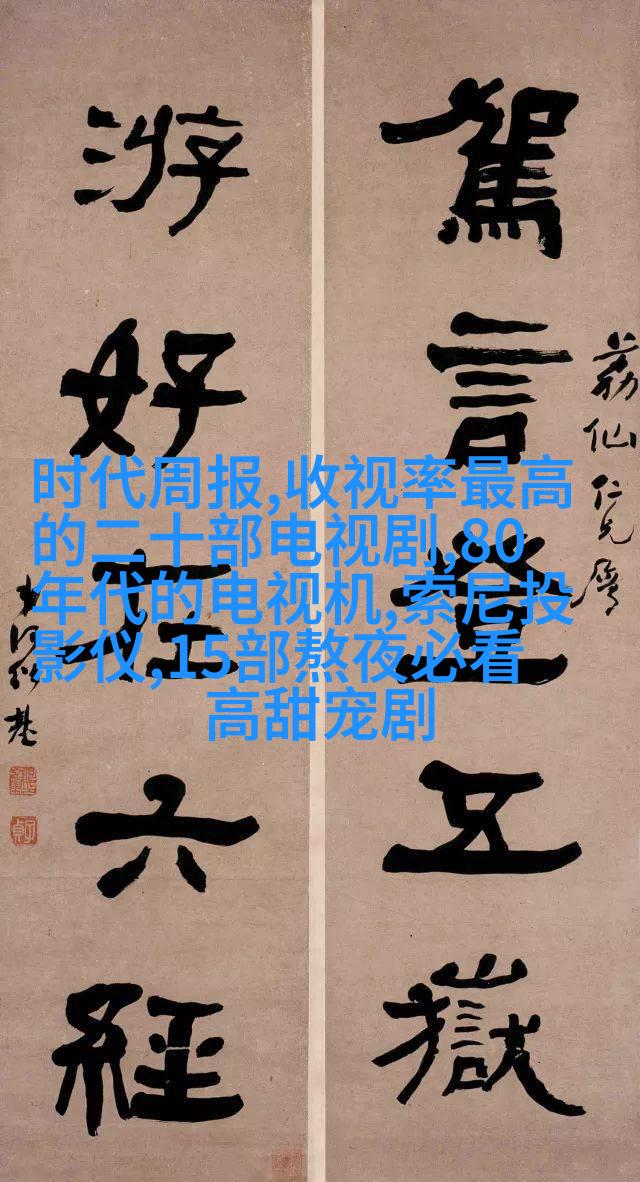 荔仙仁兄屬
駕言登五嶽
游好在六經
弟何紹基
子貞
时代周报,收视率最高
的二十部电视剧,80
年代的电视机,索尼投
影仪,15部熬夜必看
高甜宠剧